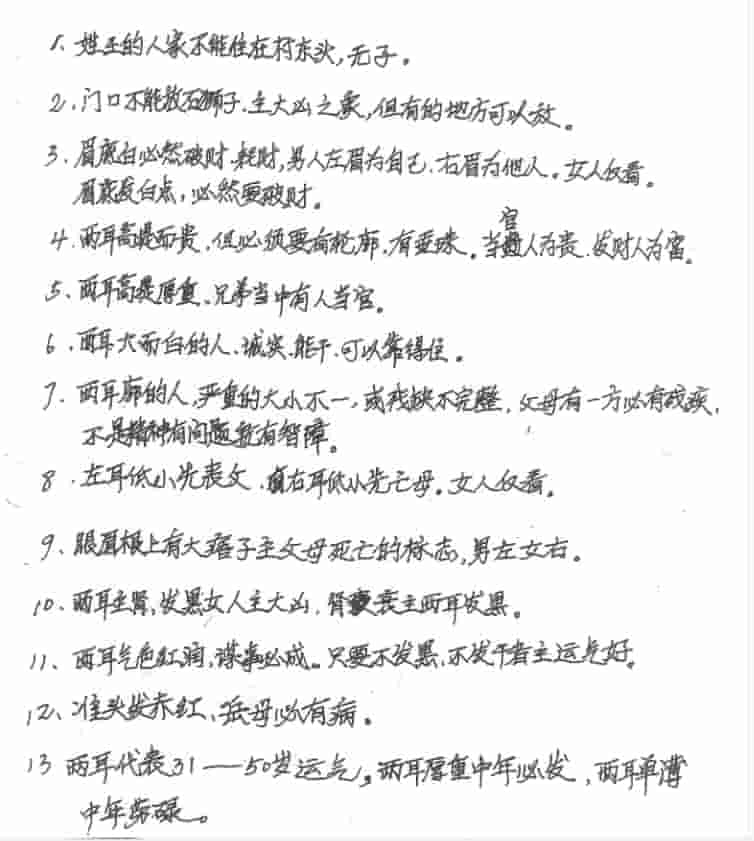 1. 姓王的人家不能住在村东头,无子。
2、门口不能放石狮子、主大凶之象,但有的地方可以放。
3、眉底白必然破财、耗财,男人左眉为自己、右眉为他人。女人反看。
眉底发白点,必然要破财。
官
4、两耳高提而贵、但必须要有轮廓、有垂珠。当人为贵、发财人为富。
5、两耳高提厚重、兄弟当中有人当官。
6、两耳大而白的人、诚实、能干、可以靠得住。
7、两耳廓的人,严重的大小不一,或残缺不完整,父母有一方必有残疾,
不是精神有问题就有智障。
8、左耳低小先丧父、右耳低小先亡母。女人反看。
9、眼眉根上有大痦子主父母死亡的标志,男左女右。
10、两耳主肾、发黑女人主大凶,肾衰主两耳发黑。
11、两耳气色红润,谋事必成。只要不发黑、不发干者主运气好。
12、准头发赤红、岳母必有病。
13 两耳代表31——50岁运气,两耳厚重中年必发,两耳单薄
中年劳碌。